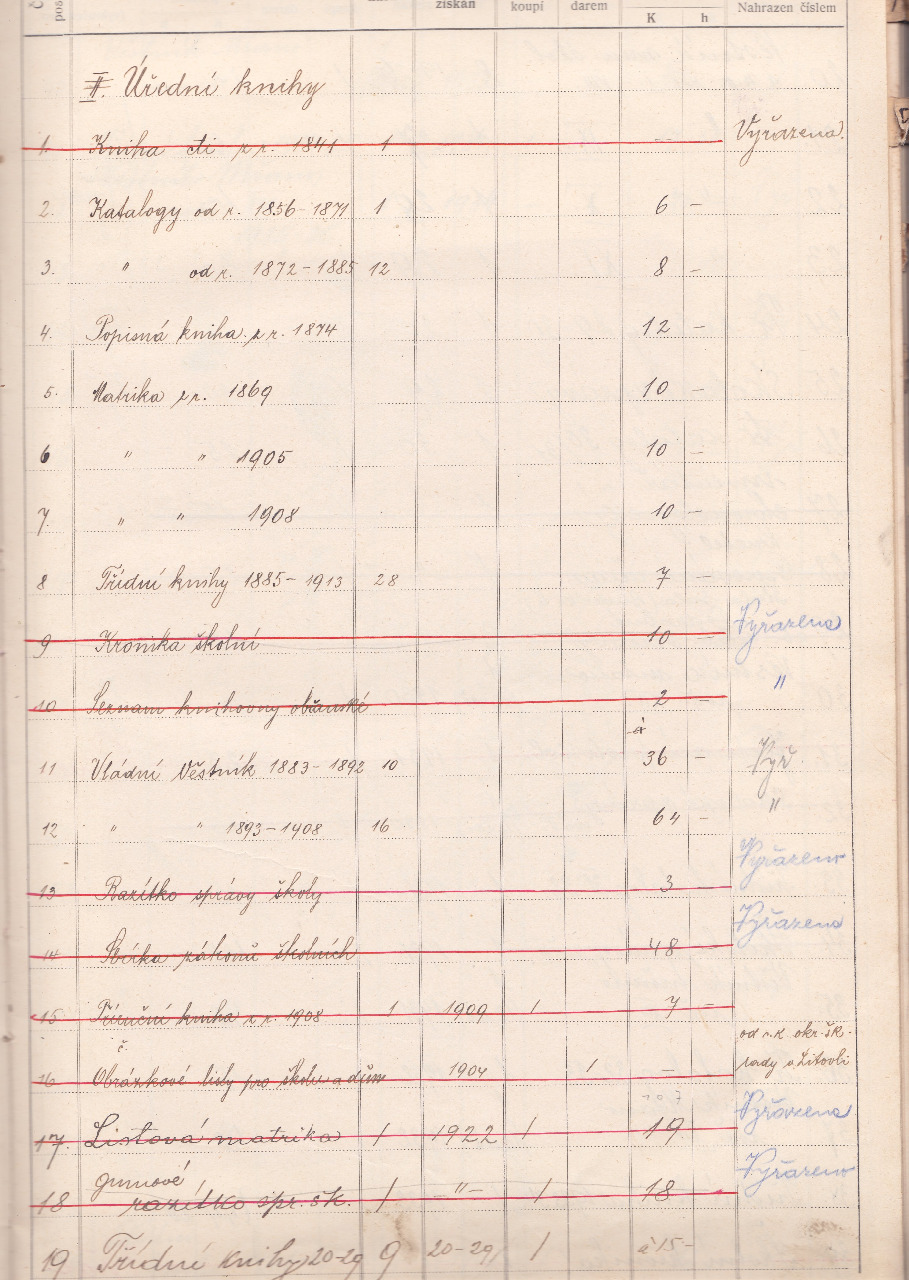 získán koupí darem K h Nahrazen číslem
II. Úřední knihy
1. Kniha cti z r. 1841 1 — Vyřazena.
2. Katalogy od r. 1856-1871 1 6 —
3. " od r. 1872-1885 12 8 —
4. Popisná kniha z r. 1874 12 —
5. Matrika z r. 1869 10 —
6 " " 1905 10 —
7. " " 1908 10 —
8 Třídní knihy 1885-1913 28 7 —
9 Kronika školní 10 — Vyřazena
10 Seznam knihovny občanské 2 — "
11 Vládní Věstník 1883-1892 10 à 36 — Vyř.
12 " " 1893-1908 16 64 — "
13 Razítko správy školy 3 — Vyřazeno
14 Sbírka zákonů školních 48 — Vyřazena
15 Příruční kniha z r. 1908 1 1909 1 7 —
16 Obrázkové listy pro školu a dům 1904 1 — od c.k. okr. šk. rady v Litovli
17. Listová matrika 1 1922 1 19 Vyřazena
18 gumové razítko spr. šk. 1 —"— 1 18 Vyřazeno
19 Třídní knihy 20-29 9 20-29 1 à 15 —